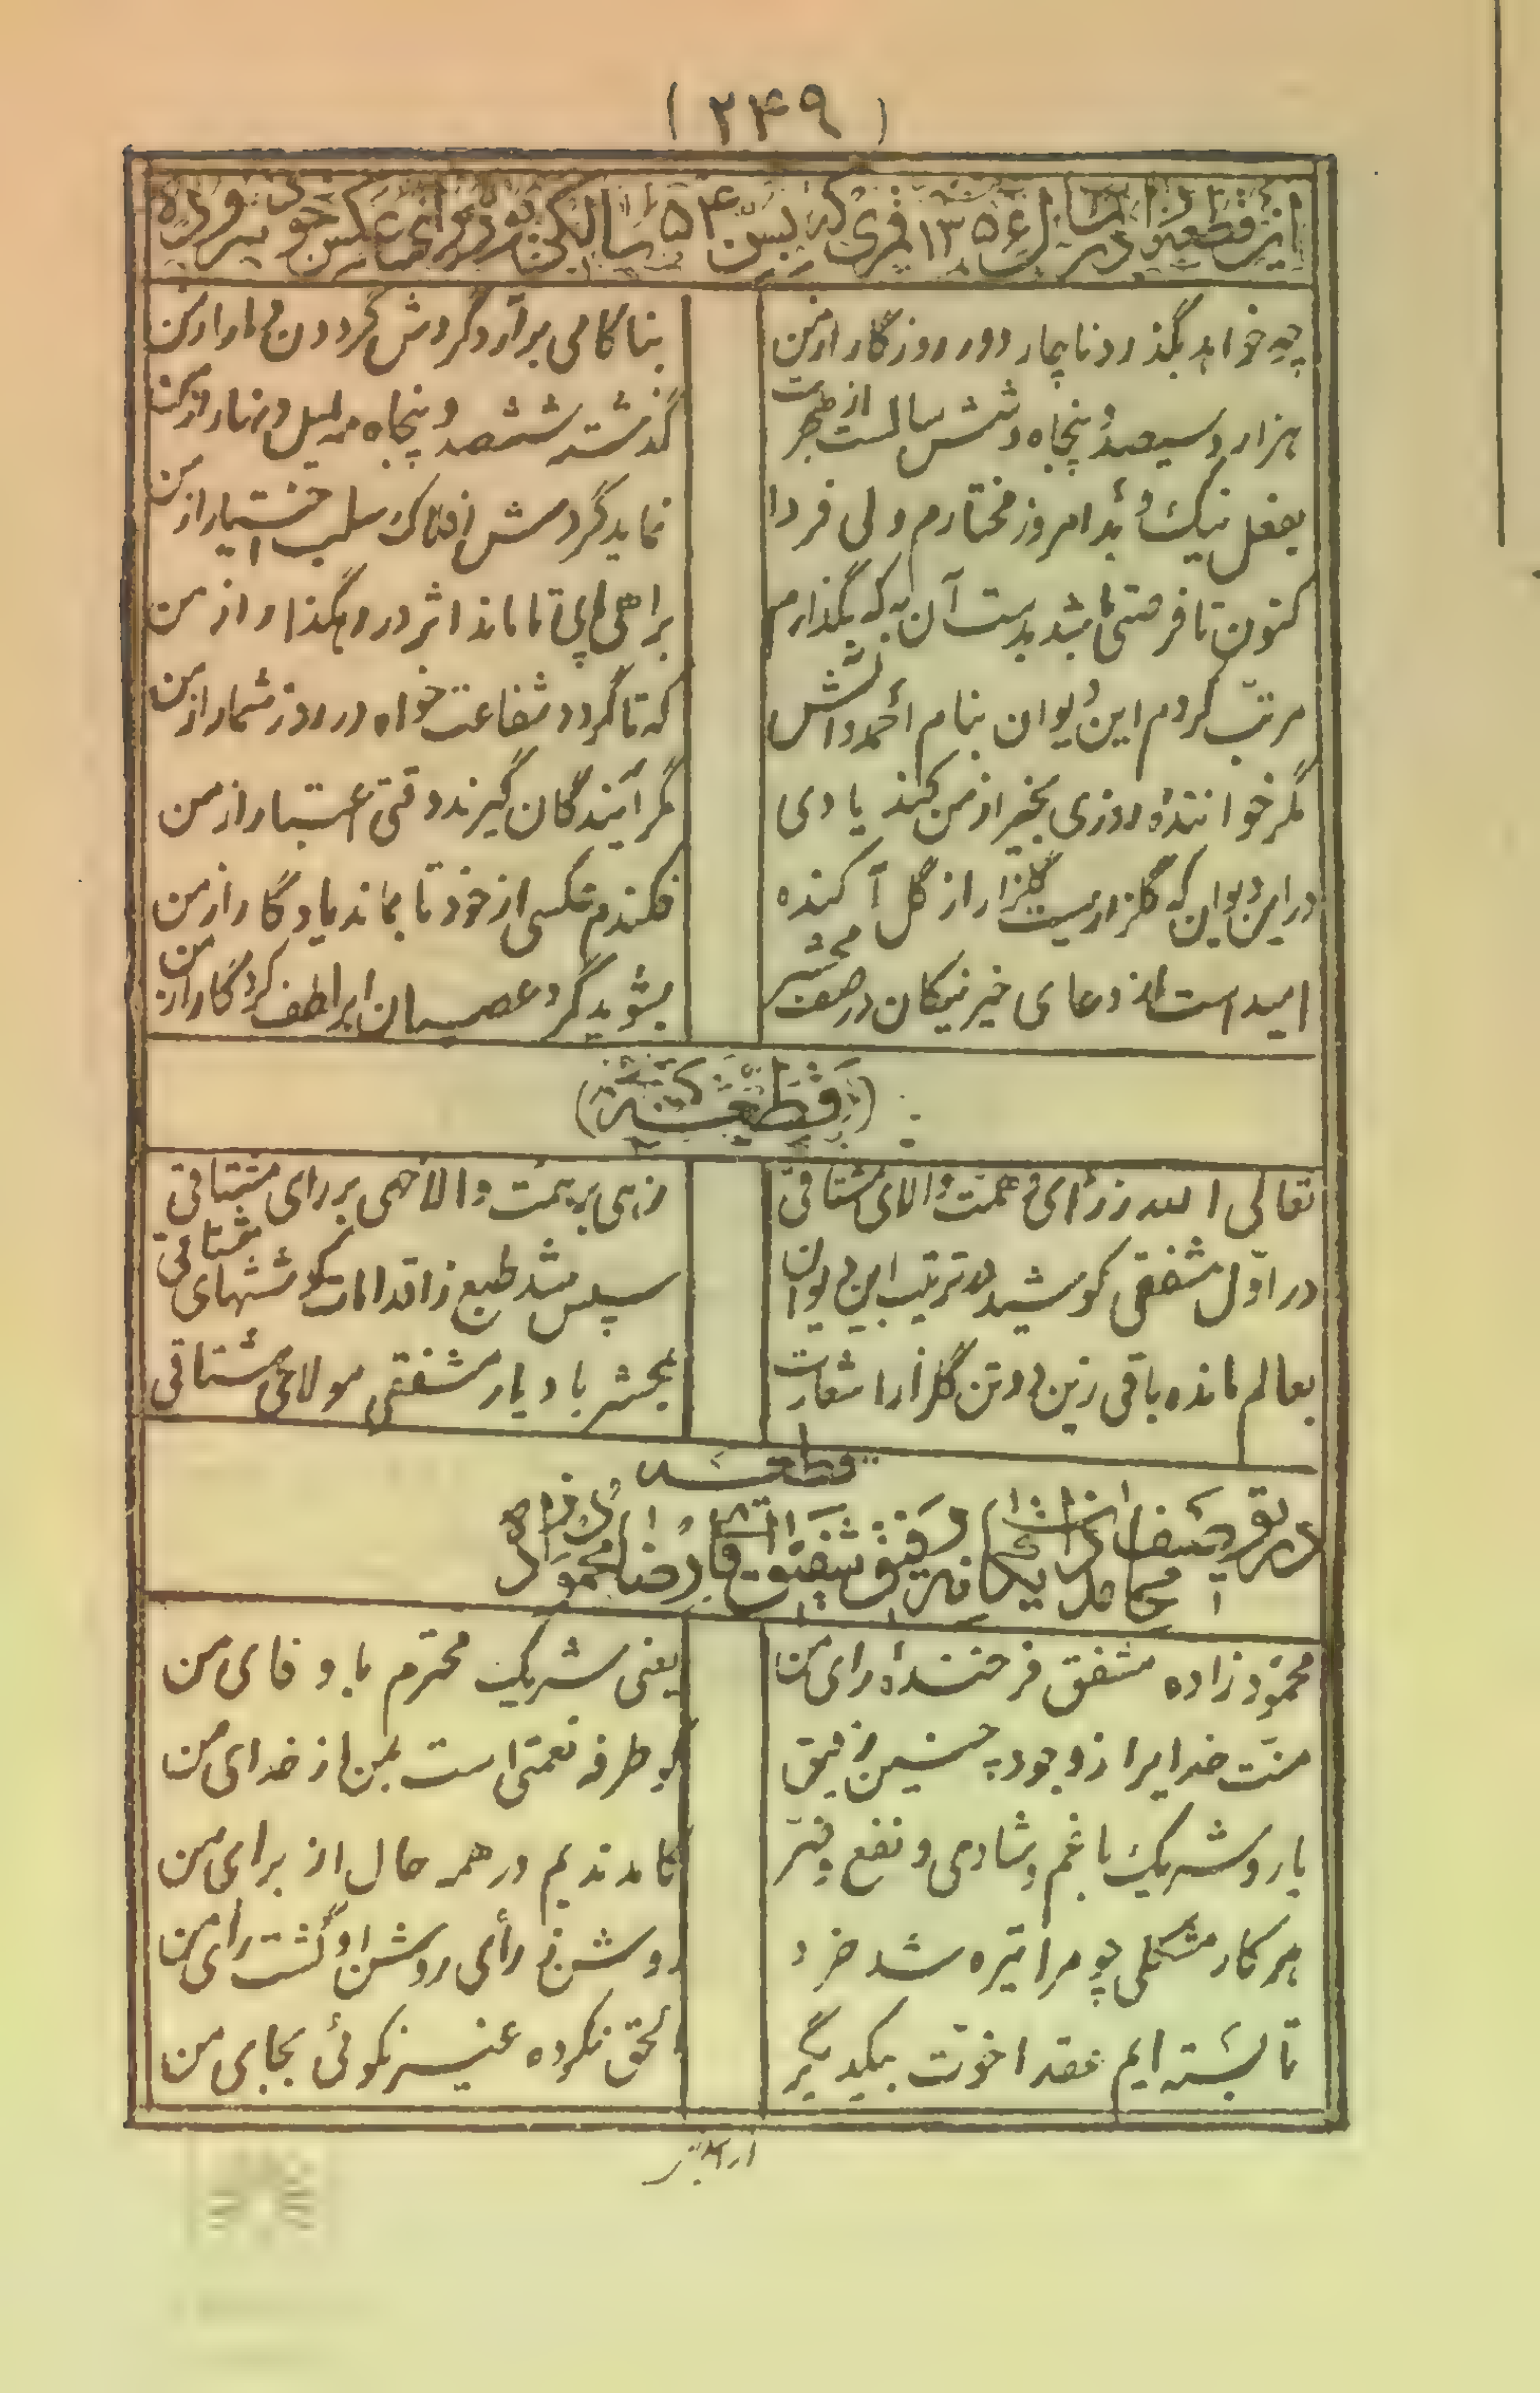 (۲۴۹)
این قطعه در سال ۱۳۵۶ قمری که بسن ۵۴ سالگی بودم برای عکس خود سروده
چه خواهد بگذرد ناچار دور روزگار از من
بناکامی برآرد گردش گردون دمار از من
هزار و سیصد و پنجاه و شش سالست از هجرت
گذشته ششصد و پنجاه مه لیل و نهار از من
بفعل نیک و بد امروز مختارم ولی فردا
نماید گردش افلاک سلب اختیار از من
کنون تا فرصتی باشد بدست آن به که بگذارم
براهی پی تا ماند اثر در رهگذار از من
مرتب کردم این دیوان بنام احمد و آلش
که تا گردد شفاعت خواه در روز شمار از من
مگر خواننده روزی بخیر از من کند یادی
مگر آیندگان گیرند وقتی اعتبار از من
در این دیوان که گلزاریست گلزار از گل آکنده
فکندم عکسی از خود تا بماند یادگار از من
امید است از دعای خیر نیکان در صف محشر
بشوید گرد عصیان ابر لطف کردگار از من
(قطعه)
تعالی الله ز رأی و همت والای مشتاقی
زهی بر همت والا خهی بر رای مشتاقی
در اول مشفقی کوشید در ترتیب این دیوان
سپس شد طبع ز اقدامات کوششهای مشتاقی
بعالم مانده باقی زین دو تن گلزار اشعارت
بحشر باد یار مشفقی مولای مشتاقی
قطعه
در تقریصفات یگانه رفیق شفیق آقا رضا محمودزاده
محمودزاده مشفق فرخنده رای من
یعنی شریک محترم باوفای من
منت خدایرا ز وجود چنین رفیق
کو طرفه نعمتی است بمن از خدای من
یار و شریک با غم و شادی و نفع و ضر
کامد ندیم در همه حال از برای من
هر کار مشکلی چو مرا تیره شد خرد
روشن ز رأی روشن او گشت رای من
تا بسته ایم عقد اخوت بیکدیگر
الحق نکرده غیر نکوئی بجای من